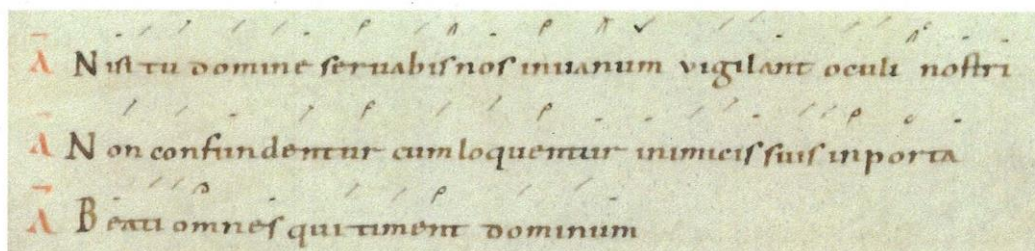 Ā Nisi tu domine servabis nos inuanum vigilant oculi nostri
Ā Non confundentur cum loquentur inimicis suis in porta
Ā Beati omnes qui timent dominum